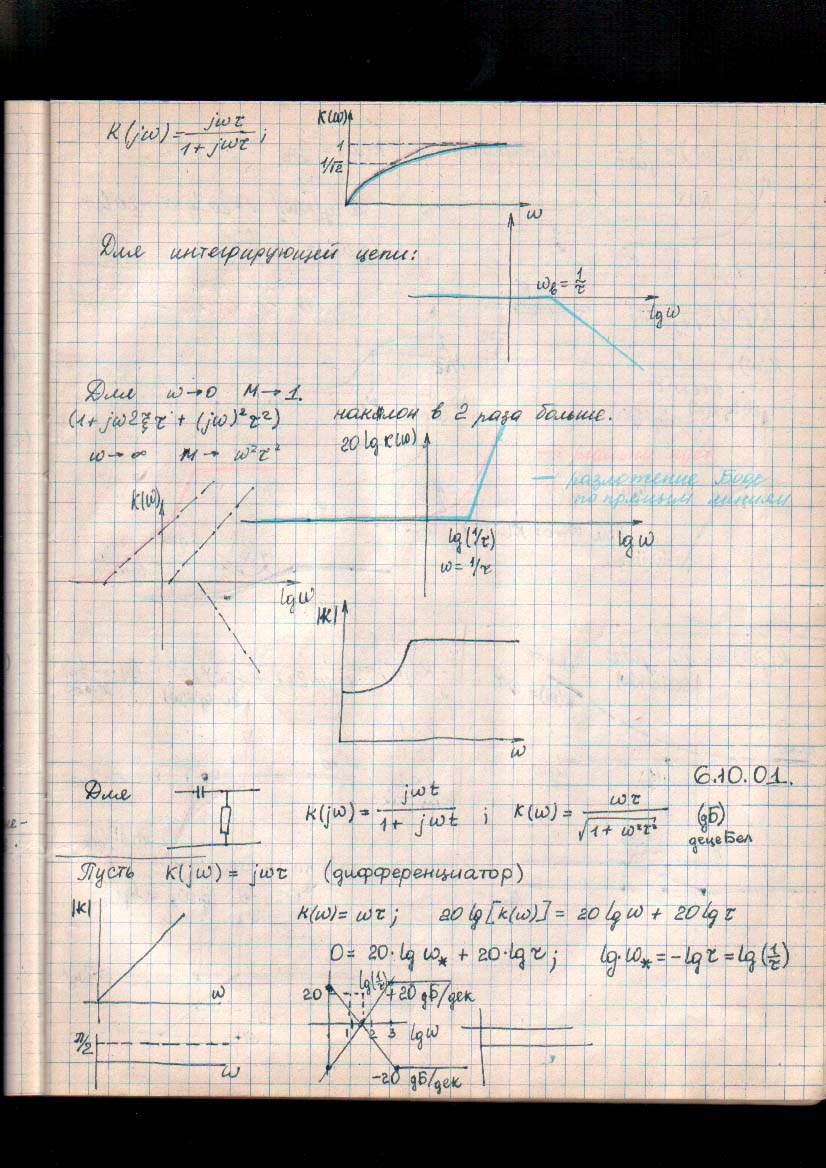 K(jω) = jωτ / (1 + jωτ) ;
K(ω)
1
1/√2
ω
Для интегрирующей цепи:
ωв = 1/τ
lg ω
Для ω→0 M→1.
(1 + jω2ξτ + (jω)²τ²) наклон в 2 раза больше.
ω→∞ M→ω²τ²
20 lg K(ω)
— разложение Боде
по прямым линиям
K(ω)
lg(1/τ)
ω = 1/τ
lg ω
lg ω
|K|
ω
6.10.01.
Для
K(jω) = jωt / (1 + jωt) ; K(ω) = ωτ / √(1 + ω²τ²) (дБ)
децеБел
Пусть K(jω) = jωτ (дифференциатор)
|K|
K(ω) = ωτ ; 20 lg [K(ω)] = 20 lg ω + 20 lg τ
0 = 20·lg ω* + 20·lg τ ; lg·ω* = -lg τ = lg(1/τ)
ω
20
lg(1/τ)
+20 дБ/дек
1 2 3 lg ω
π/2
ω
-20 дБ/дек